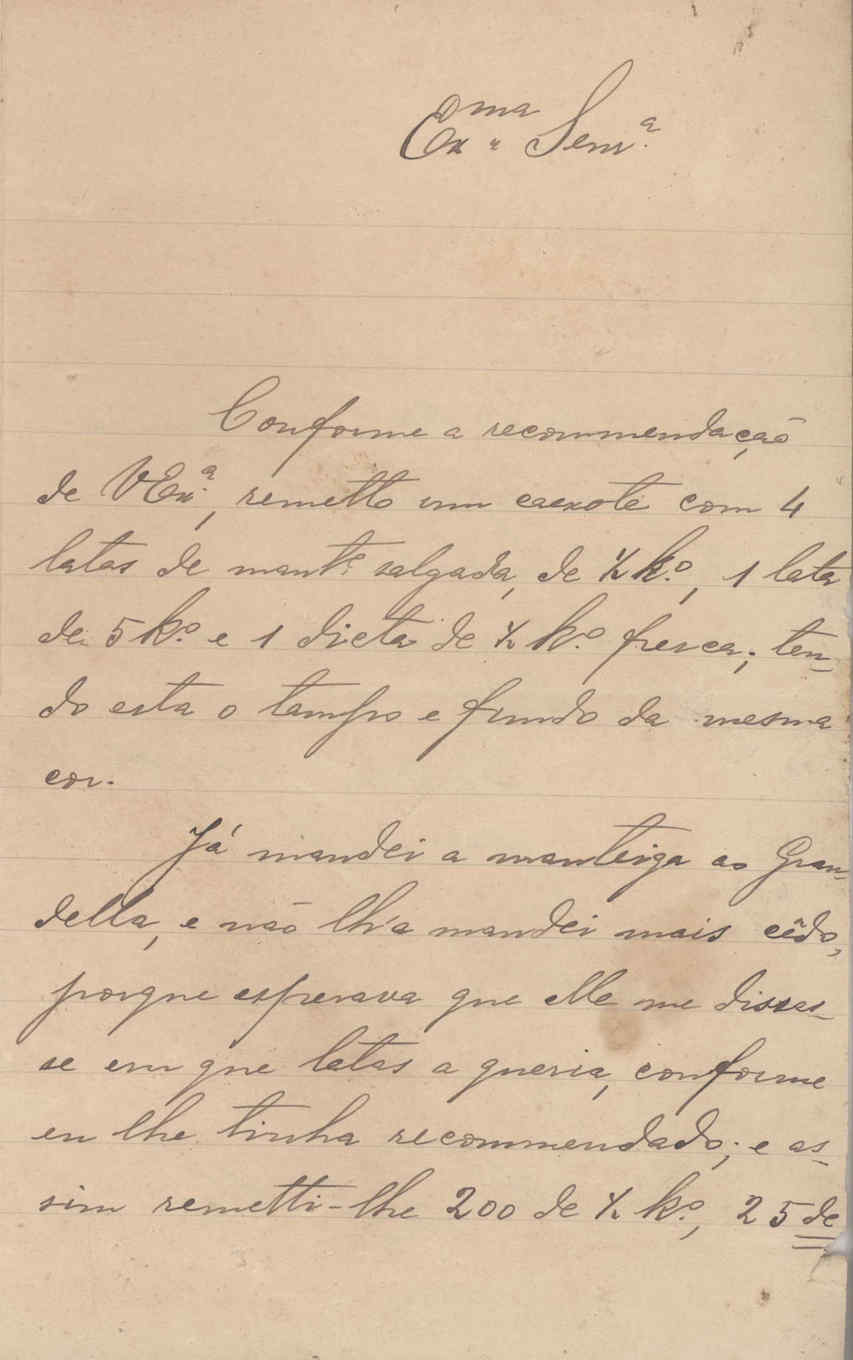 Exma Senra
Conforme a recommendação
de VExa, remetto um caexote com 4
latas de mantª salgada, de ½ ko, 1 lata
de 5 ko e 1 dicta de ½ ko fresca; ten-
do esta o tampo e fundo da mesma
cor.
Já mandei a manteiga ao Gran-
della, e não lh'a mandei mais cêdo,
porque esperava que elle me disses-
se em que latas a queria, conforme
eu lhe tinha recommendado; e as-
sim remetti-lhe 200 de ½ ko, 25 de